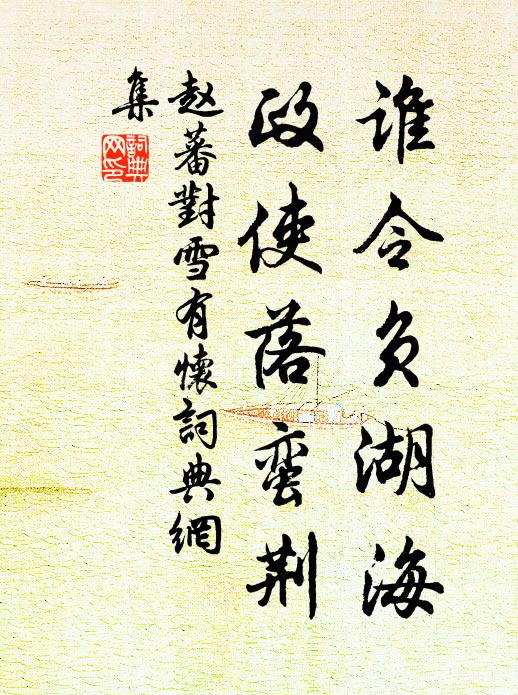 谁令负湖海
政使落蛮荆
赵蕃對雪有懷詞典網
集
詞典网印